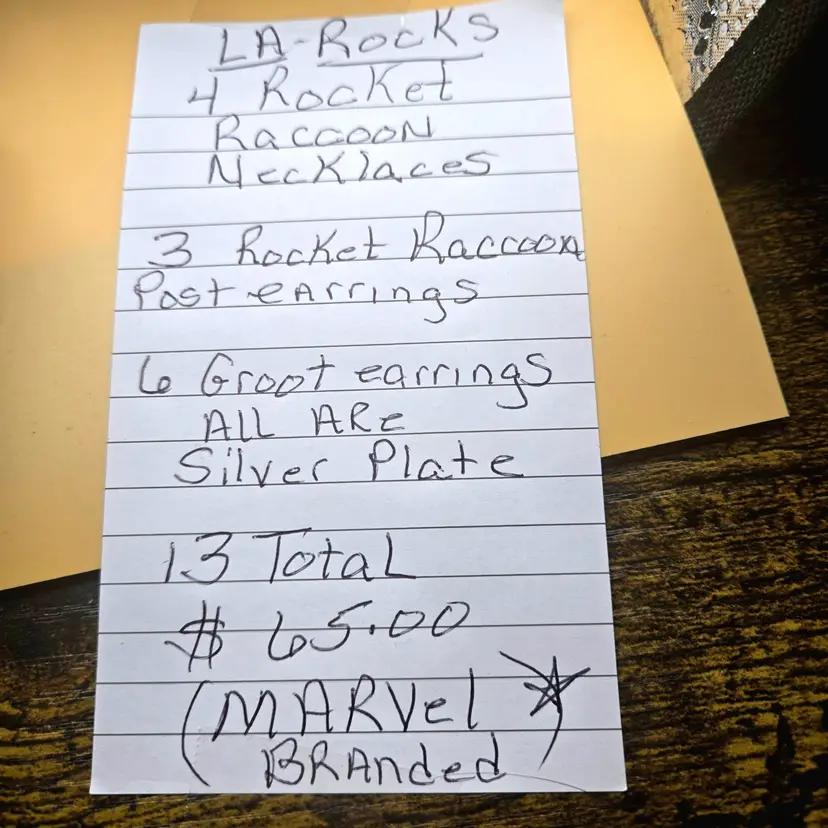 LA-ROCKS
4 Rocket
Raccoon
Necklaces
3 Rocket Raccoon
Post earrings
6 Groot earrings
All ARE
Silver Plate
13 Total
$65.00
(MARVel
BRANded)